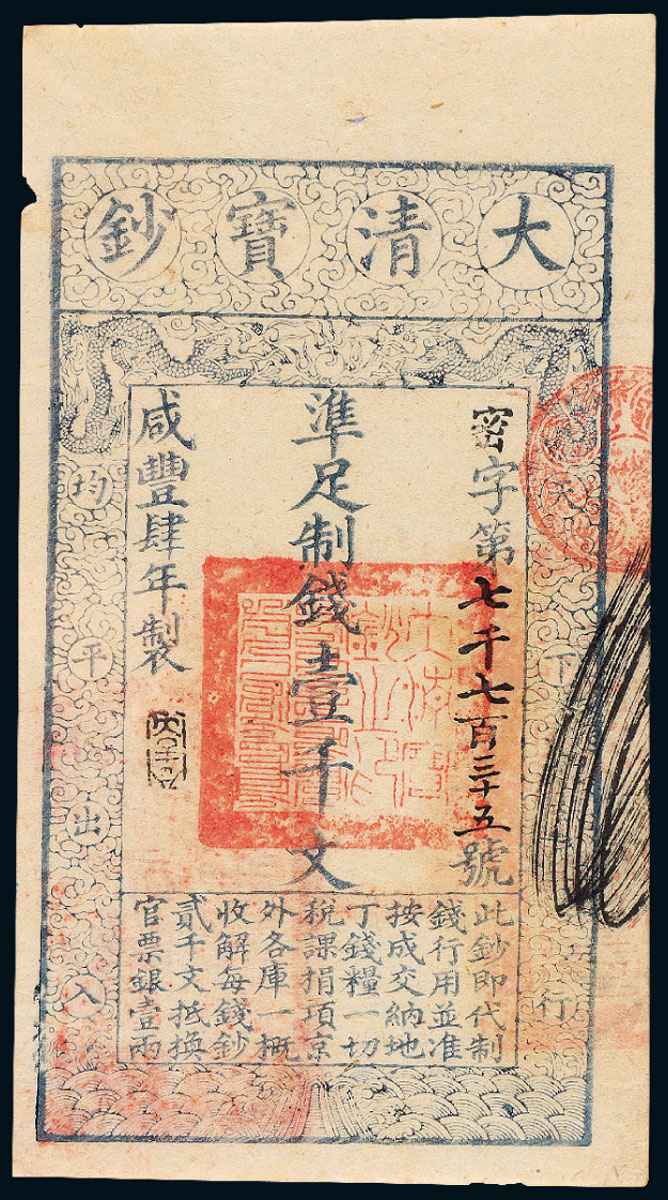 大清寶鈔
天下行
密字第七千七百三十五號
準足制錢壹千文
咸豐肆年製
均平出入
此鈔即代制
錢行用並准
按成交納地
丁錢糧一切
稅課捐項京
外各庫一概
收解每錢鈔
貳千文抵換
官票銀壹兩